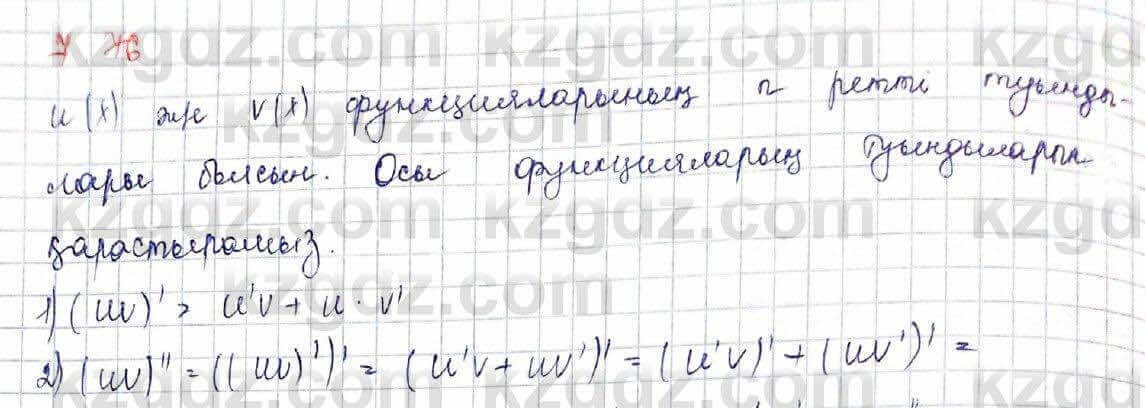 u(x) және v(x) функцияларының n ретті туынды-
лары болсын. Осы функциялараың туындыларын
қарастырамыз.
1) (uv)' = u'v + u · v'
2) (uv)'' = ((uv)')' = (u'v + uv')' = (u'v)' + (uv')' =
kzgdz.com